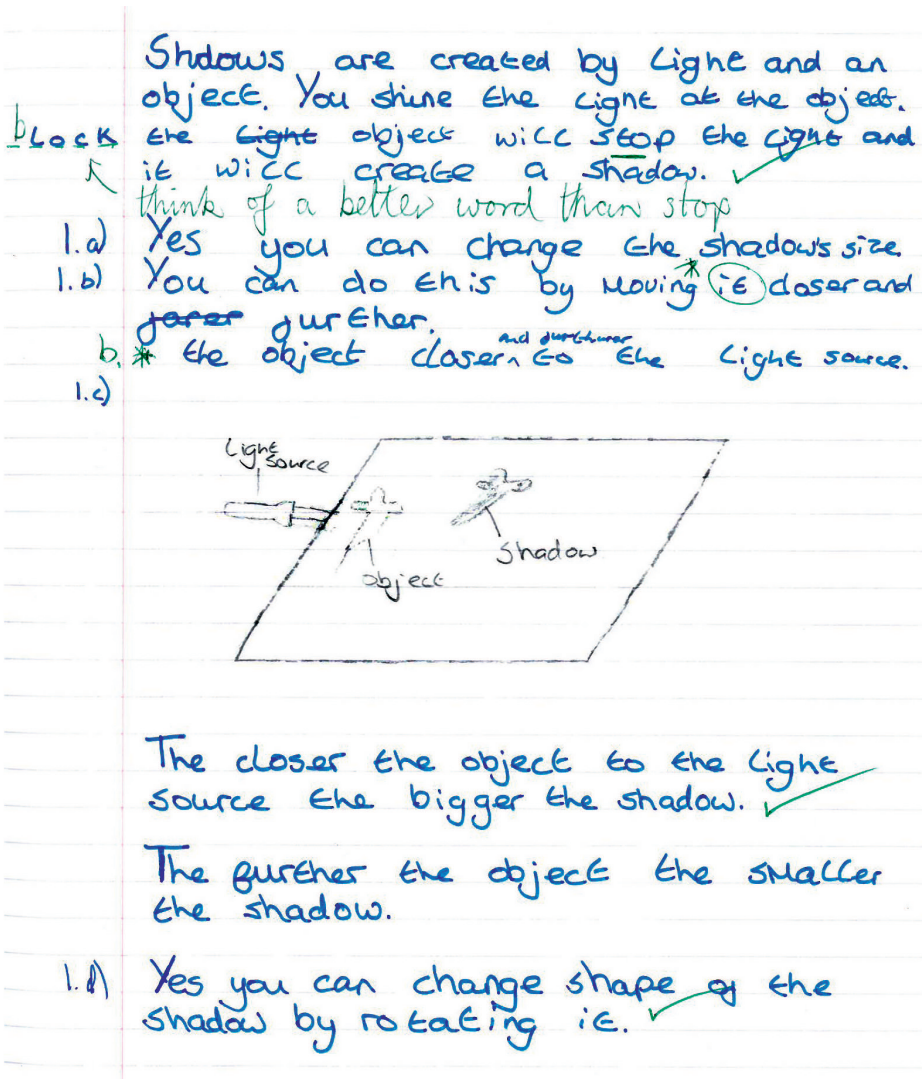 Shdows are created by light and an
object. You shine the light at the object.
block the light object will stop the light and
it will create a shadow.
think of a better word than stop
1.a) Yes you can change the shadow's size
1.b) You can do this by moving * it closer and
farer further.
and furthurer
b. * the object closer to the light source.
1.c)
light
source
shadow
object
The closer the object to the light
source the bigger the shadow.
The further the object the smaller
the shadow.
1.d) Yes you can change shape of the
shadow by rotating it.